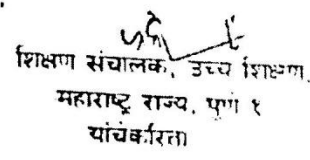 शिक्षण संचालक, उच्च शिक्षण,
महाराष्ट्र राज्य, पुणे १
यांचेकरिता